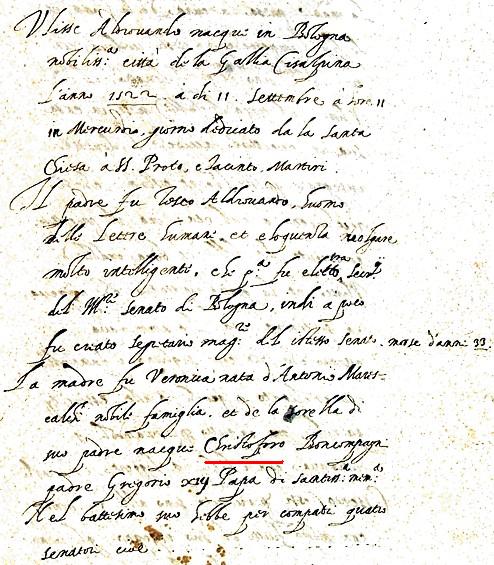 Ulisse Aldrovando nacque in Bologna
nobiliss.ª città de la Gallia Cisalpina
l'anno 1522. à dì 11. Settembre à hore 11
in Mercurdio, giorno dedicato da la Santa
Chiesa à SS. Proto, e Iacinto, Martiri.
Il padre fu Teseo Aldrovando, huomo
delle Lettre humane et eloquenza volgare
molto intelligente, che p.ª fu eletto Secr.º
del Senato di Bologna, indi a poco
fu creato Segretario mag.re del istesso Senato. morse d'anni 33.
La madre fu Veronica nata d'Antonio Mares-
calchi nobile famiglia. et de la sorella di
suo padre nacque Christoforo Boncompagn
padre Gregorio XIIJ Papa di santiss.ª mem.ª
Nel battesimo suo hebbe per compadri quatro
senatori cioè